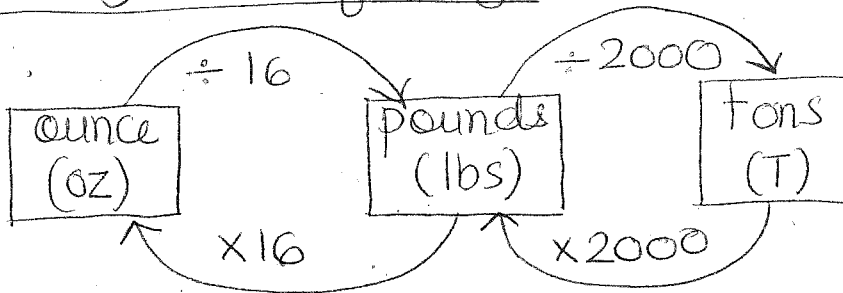 ÷ 16
÷ 2000
ounce
(oz)
pounds
(lbs)
tons
(T)
×16
×2000